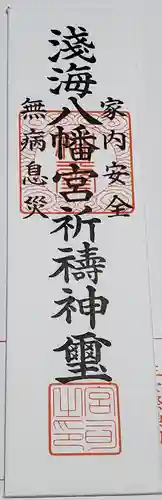 家内安全
淺海八幡宮祈禱神璽
無病息災
宮司之印